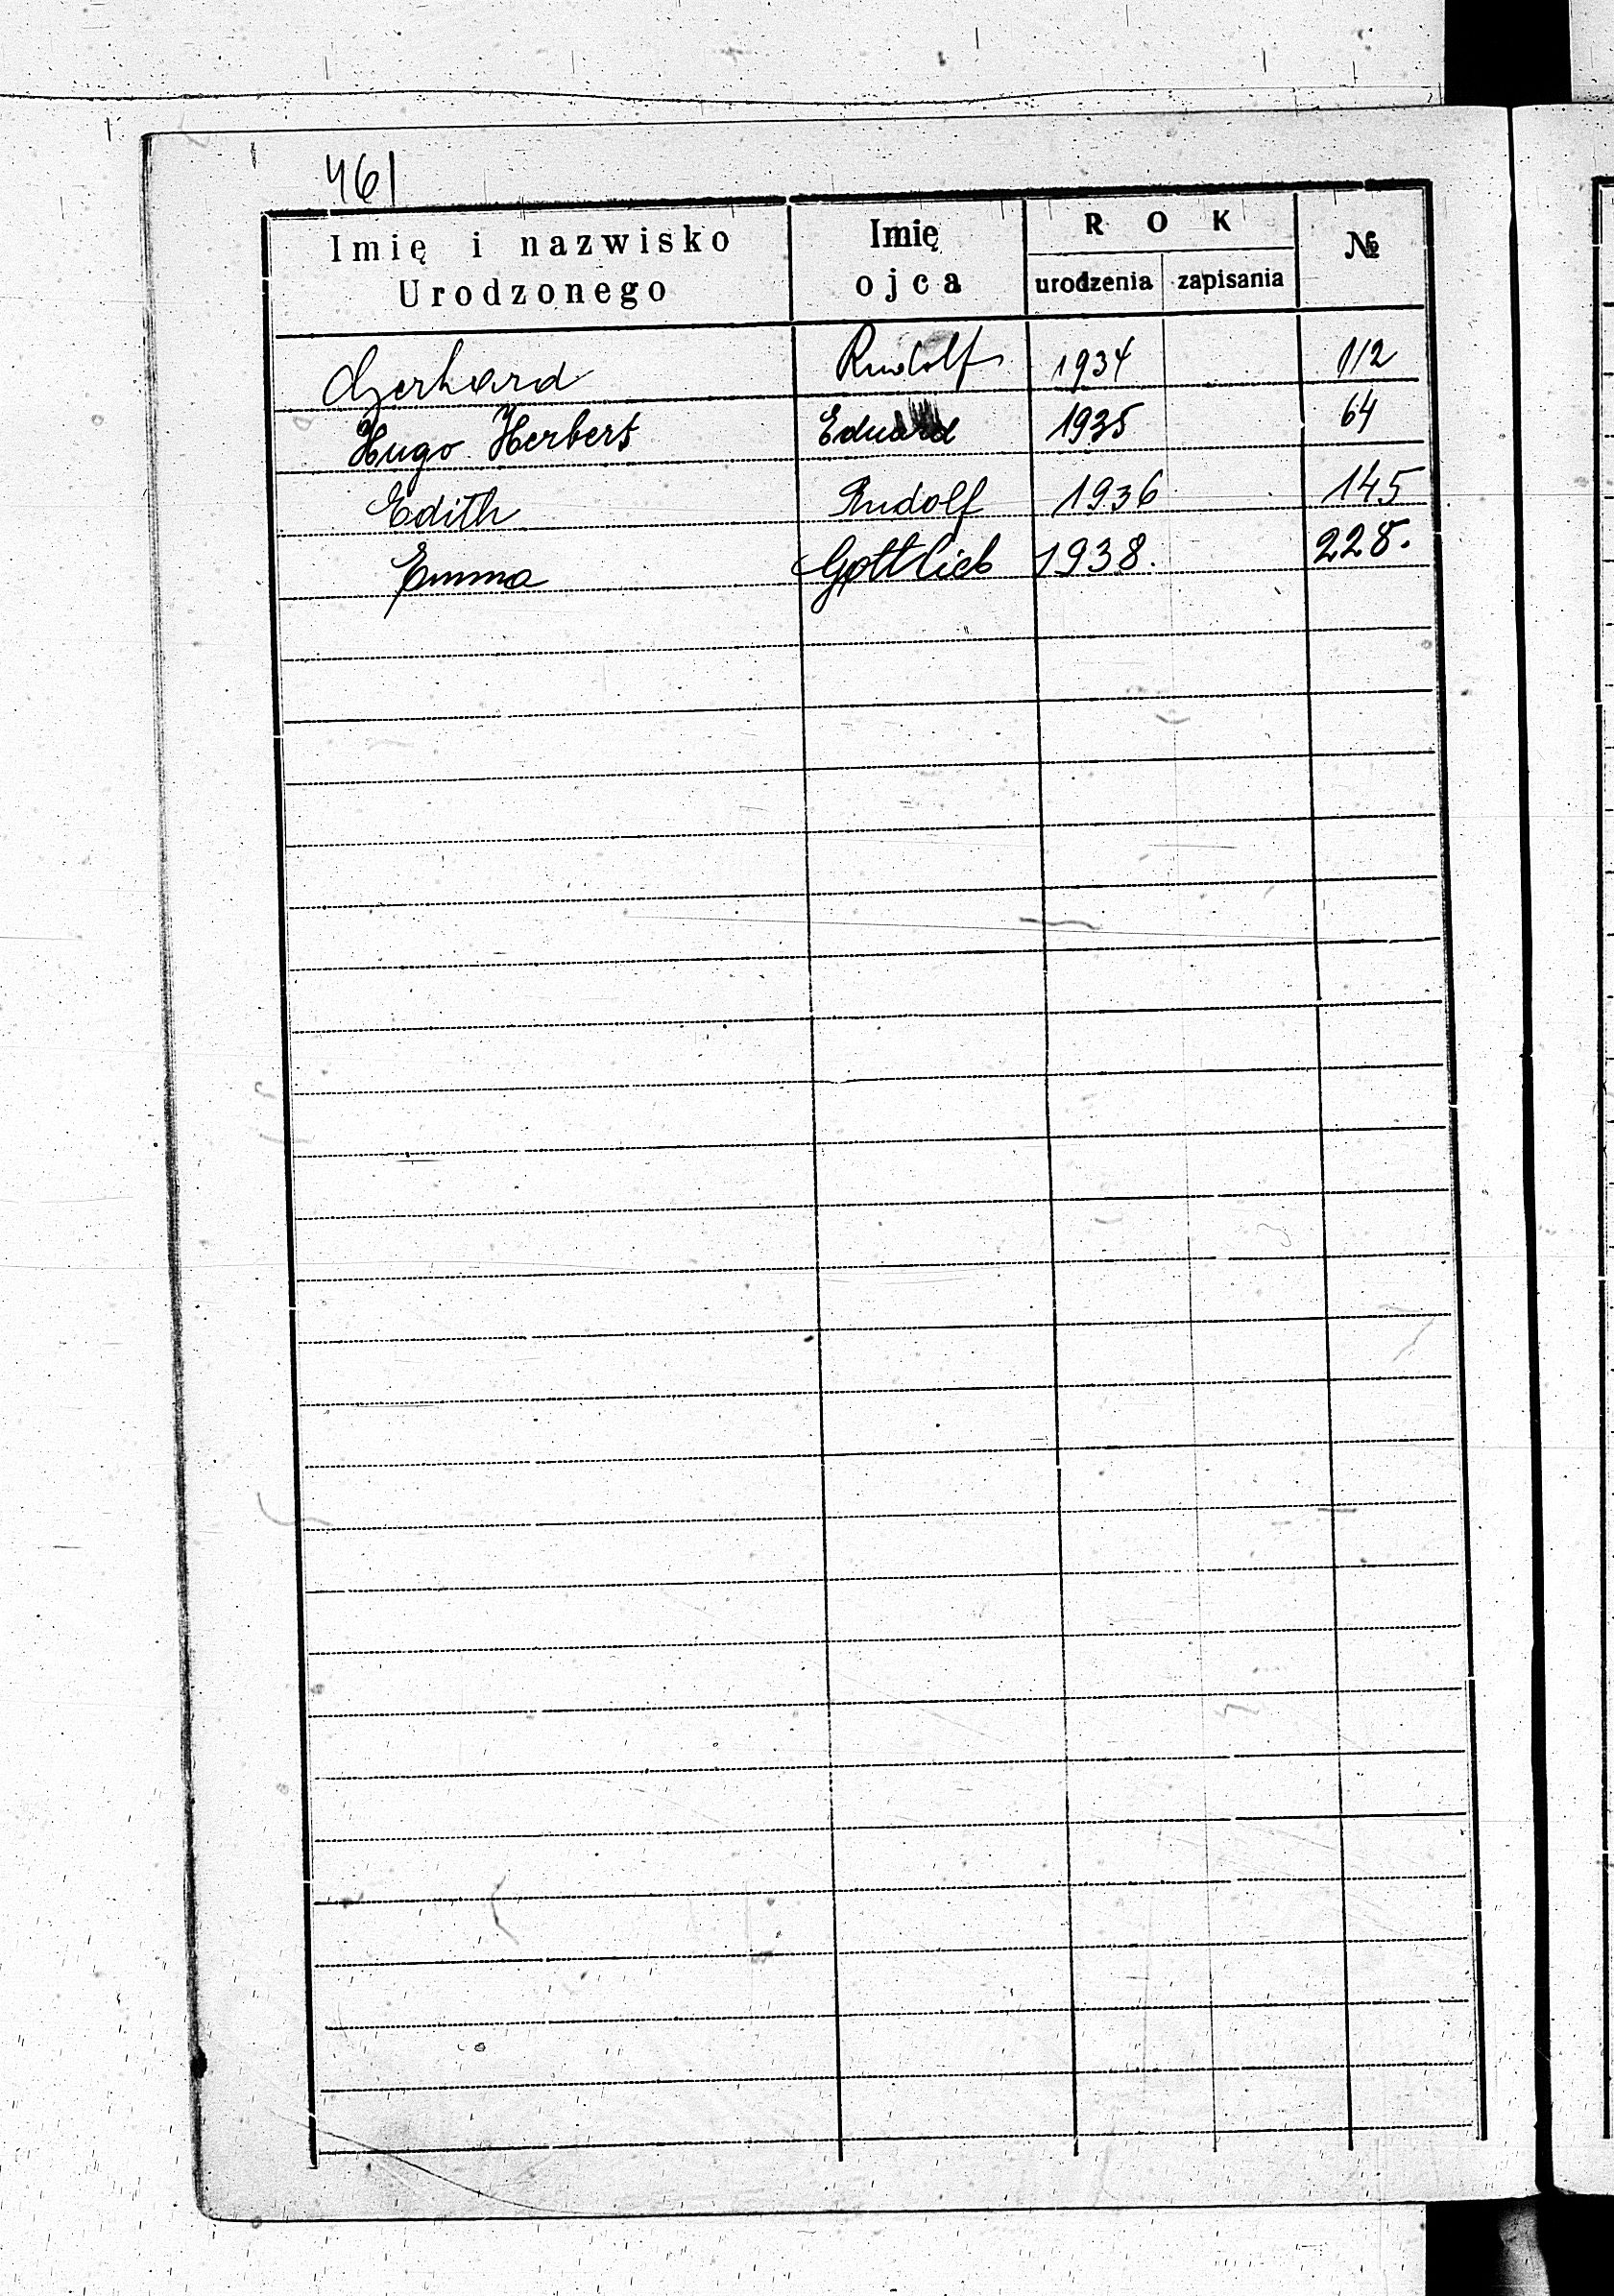 461
Imię i nazwisko Urodzonego Imię ojca ROK urodzenia zapisania №
Gerhard Rudolf 1934 112
Hugo Herbert Eduard 1935 64
Edith Rudolf 1936 145
Emma Gottlieb 1938. 228.